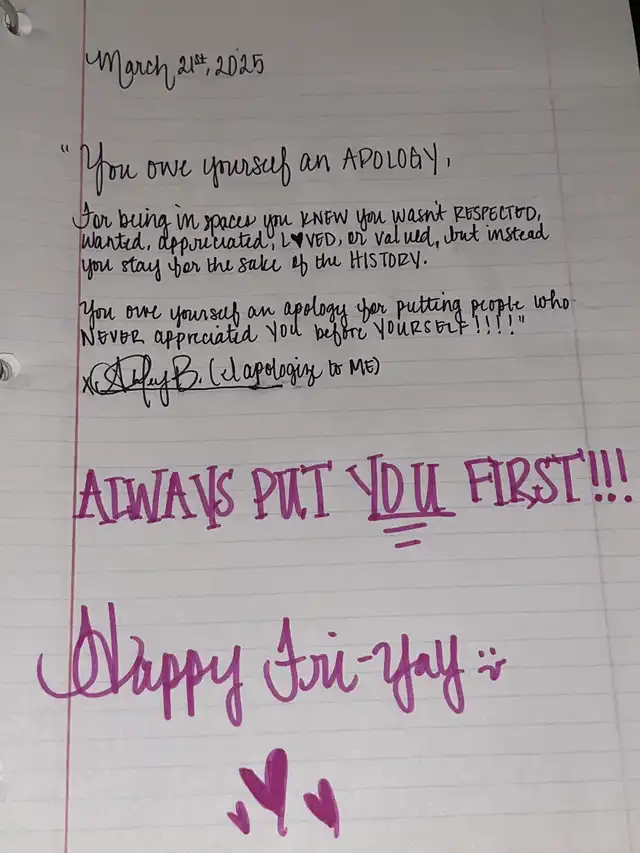 March 21st, 2025
"You owe yourself an APOLOGY,
For being in spaces you KNEW you wasn't RESPECTED,
wanted, appreciated, L♥VED, or valued, but instead
you stay for the sake of the HISTORY.
You owe yourself an apology for putting people who
NEVER appreciated YOU before YOURSELF!!!!"
B. (I apologize to ME)
ALWAYS PUT YOU FIRST!!!
Happy Fri-Yay